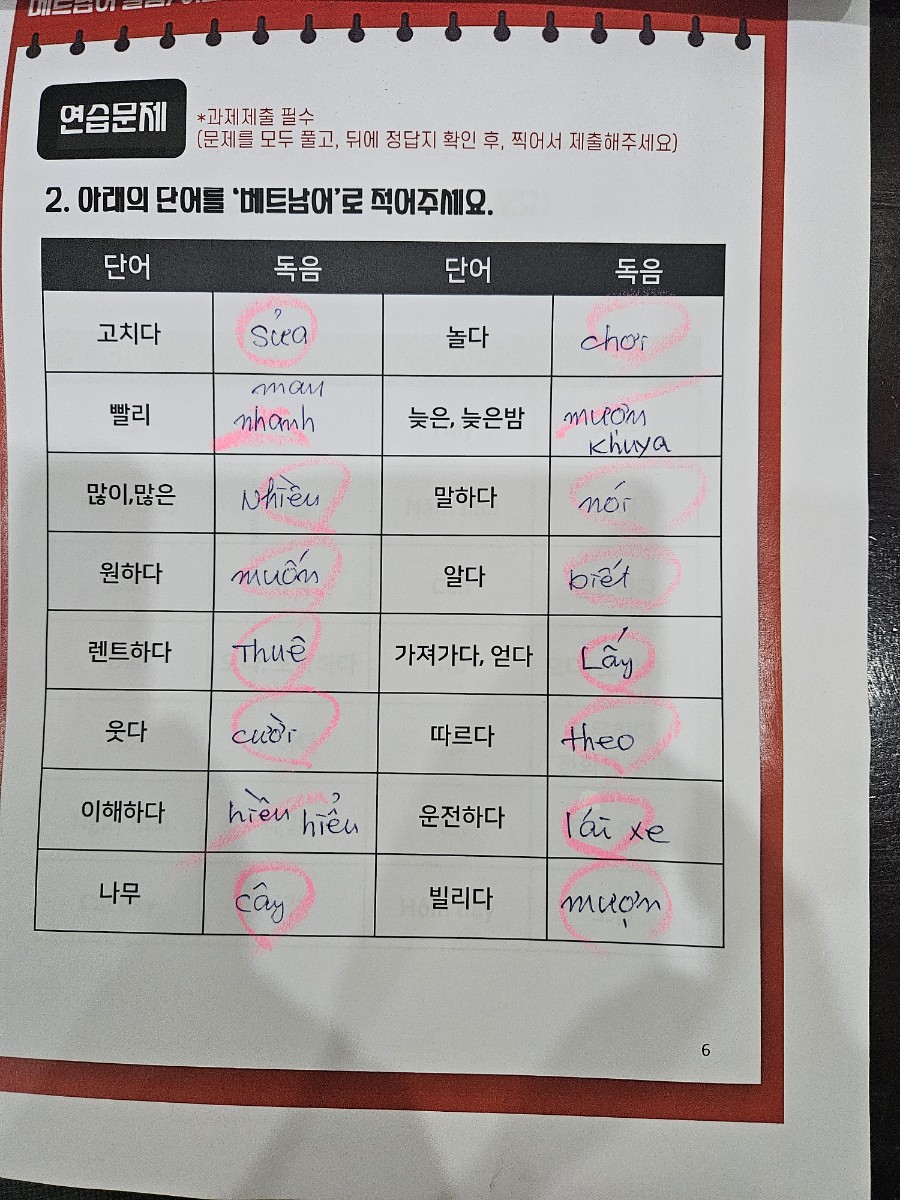 연습문제
*과제제출 필수
(문제를 모두 풀고, 뒤에 정답지 확인 후, 찍어서 제출해주세요)
2. 아래의 단어를 '베트남어'로 적어주세요.
단어 독음 단어 독음
고치다 Sửa 놀다 chơi
빨리 mau nhanh 늦은, 늦은밤 mượn khuya
많이,많은 Nhiều 말하다 nói
원하다 muốn 알다 biết
렌트하다 Thuê 가져가다, 얻다 Lấy
웃다 cười 따르다 theo
이해하다 hiều hiểu 운전하다 lái xe
나무 cây 빌리다 mượn
6